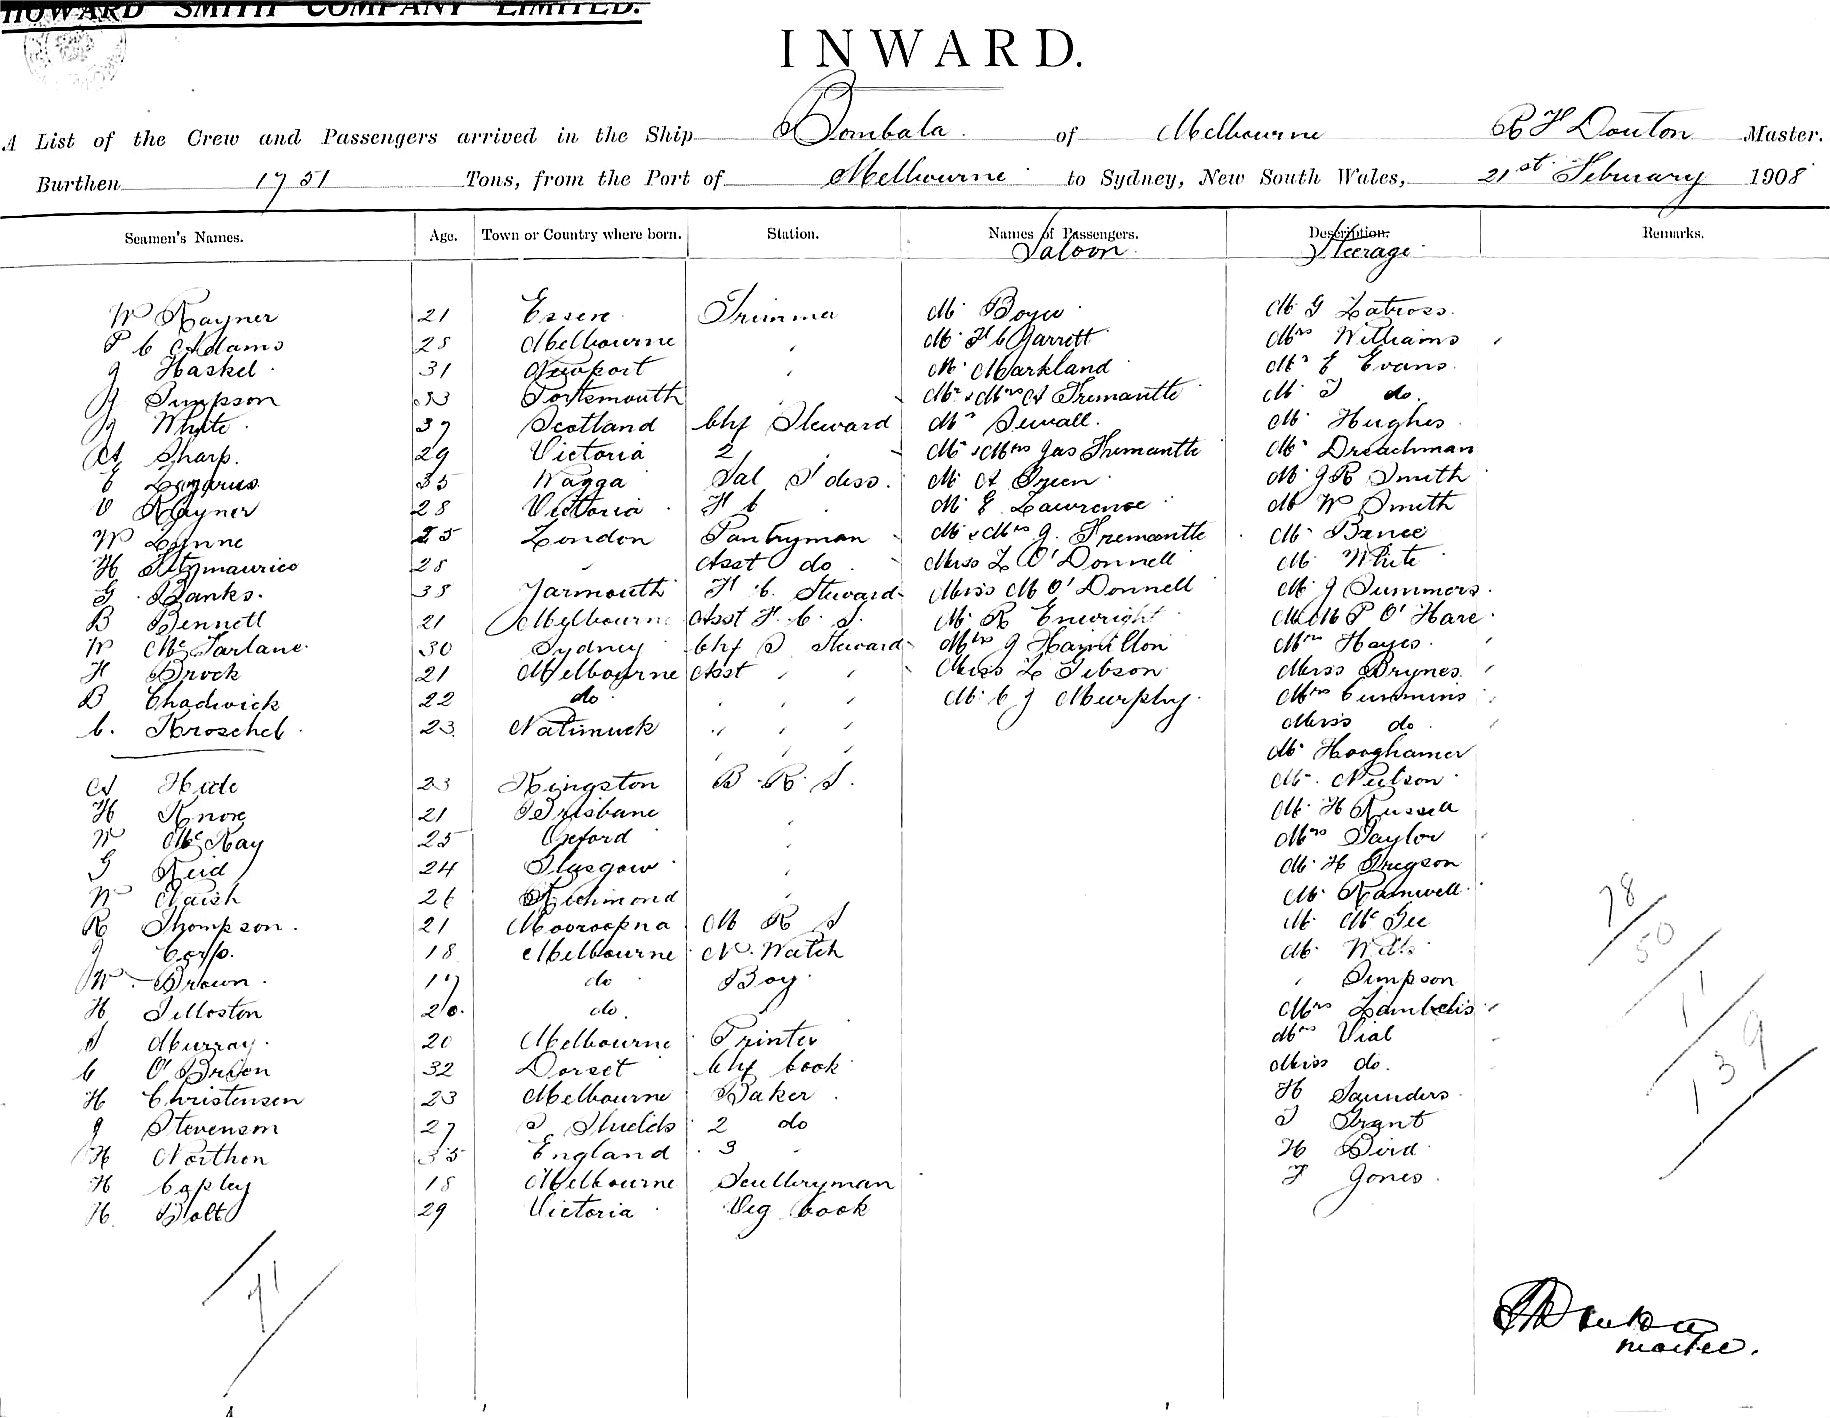 HOWARD SMITH COMPANY LIMITED.
INWARD.
A List of the Crew and Passengers arrived in the Ship Bombala of Melbourne R H Douton Master.
Burthen 1751 Tons, from the Port of Melbourne to Sydney, New South Wales, 21st February 1908
Seamen's Names. Age. Town or Country where born. Station. Names of Passengers. Description. Remarks.
Saloon Steerage
W Rayner 21 Essex Trimmer Mr Boyce Mr G Latross
P C Adams 28 Melbourne " Mr H C Garrett Mrs Williams
J Haskel 31 Newport " Mr Markland Mr E Evans
J Simpson 33 Portsmouth Mr & Mrs A Fremantle Mr T do.
J Whyte 37 Scotland Chf Steward Mr Sewall. Mr Hughes
A Sharp. 29 Victoria 2 " Mr & Mrs Jas Fremantle Mr Dreachman
E Lazarus 35 Wagga Sal S diss. Mr A Green Mr J R Smith
V Rayner 28 Victoria F C Mr E Lawrence Mr W Smith
W Lynne 25 London Pantryman Mr & Mrs J. Fremantle Mr Bence
H Fitzmaurice 28 " Asst do. Miss L O'Donnell Mr White
G Banks. 38 Yarmouth F C. Steward Miss M O'Donnell Mr J Summers
B Bennett 21 Melbourne Asst F. C. S. Mr R Enwright M P O'Hare
W McFarlane 30 Sydney Chf S Steward Mrs J Hamilton Mrs Hayes
H Brock 21 Melbourne Asst " " Miss L Gibson Miss Brynes
B Chadwick 22 do " " " Mr C J Murphy Mrs Cummins
C. Kroschel 23 Natimuck " " " Miss do.
" " " Mr Hooghamer
A Hide 23 Kingston B. R. S. Mr. Neilson
H Knox 21 Brisbane Mr H Russell
W McKay 25 Oxford " Mrs Taylor
G Reid 24 Glasgow " Mr H Gregson
W Naish 26 Richmond " Mr Ramwell
R Thompson. 21 Mooroopna M R S Mr McGee
J Corp. 18 Melbourne N. Watch Mr Wills
W. Brown. 17 do Boy " Simpson
H Tilloston 20. do. Mrs Lambelis
S Murray. 20 Melbourne Printer Mrs Vial
C O'Brien 32 Dorset Chf Cook Miss do.
H Christensen 23 Melbourne Baker H Saunders
J Stevenson 27 S Shields 2 do T Grant
H Northen 35 England 3 " H Bird
H Copley 18 Melbourne Scullryman F Jones
H. Bolt 29 Victoria Veg Cook
78
50
11
139
71
master.